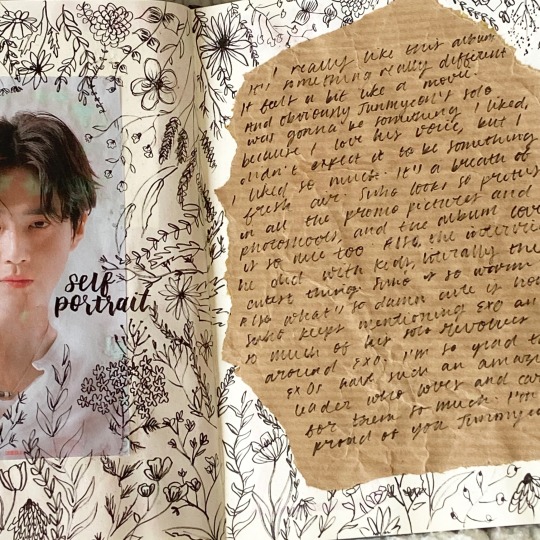 self
portrait
I really like this album
It's something really different
It felt a bit like a movie.
And obviously Junmyeon's solo
was gonna be something I liked,
because I love his voice, but I
didn't expect it to be something
I liked so much. It's a breath of
fresh air. Suho looks so pretty
in all the promo pictures and
photoshoots, and the album cover
is so nice too. Also, the interview
he did with kids, literally the
cutest thing. Suho is so warm
Also what's so damn cute is how
Suho keeps mentioning EXO an
so much of his solo revolves
around EXO. I'm so glad t
EXOs have such an amaz
leader who loves and car
for them so much. I'm
proud of you Junmyeo